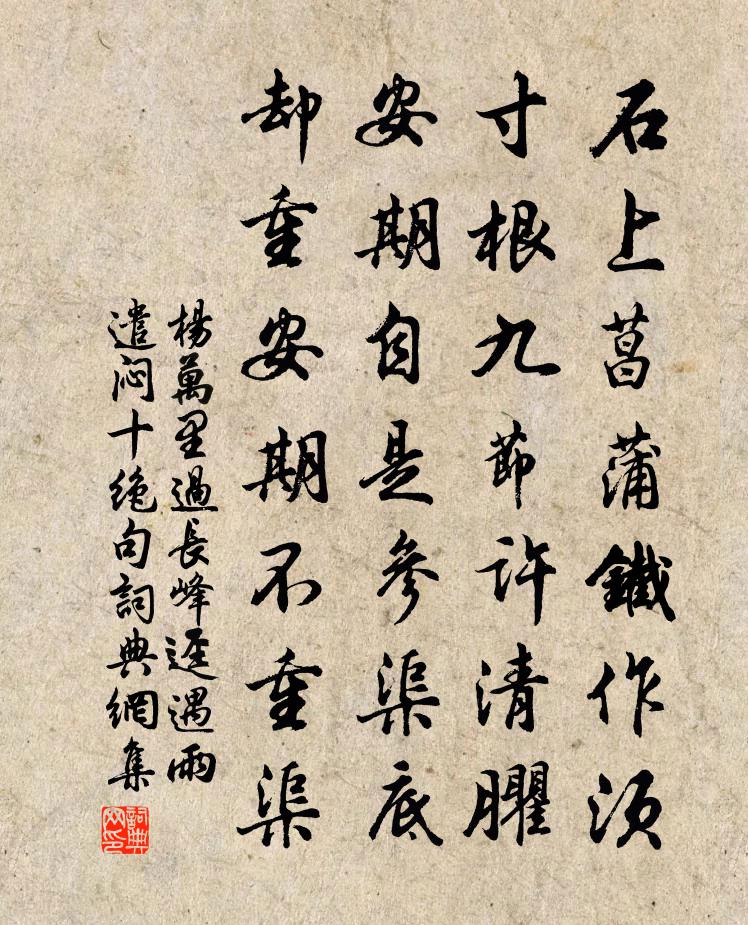 石上菖蒲鐵作須
寸根九節許清臞
安期自是參渠底
却重安期不重渠
楊萬里過長峰遥遇雨
遣悶十絶句詞典網集
詞典网印